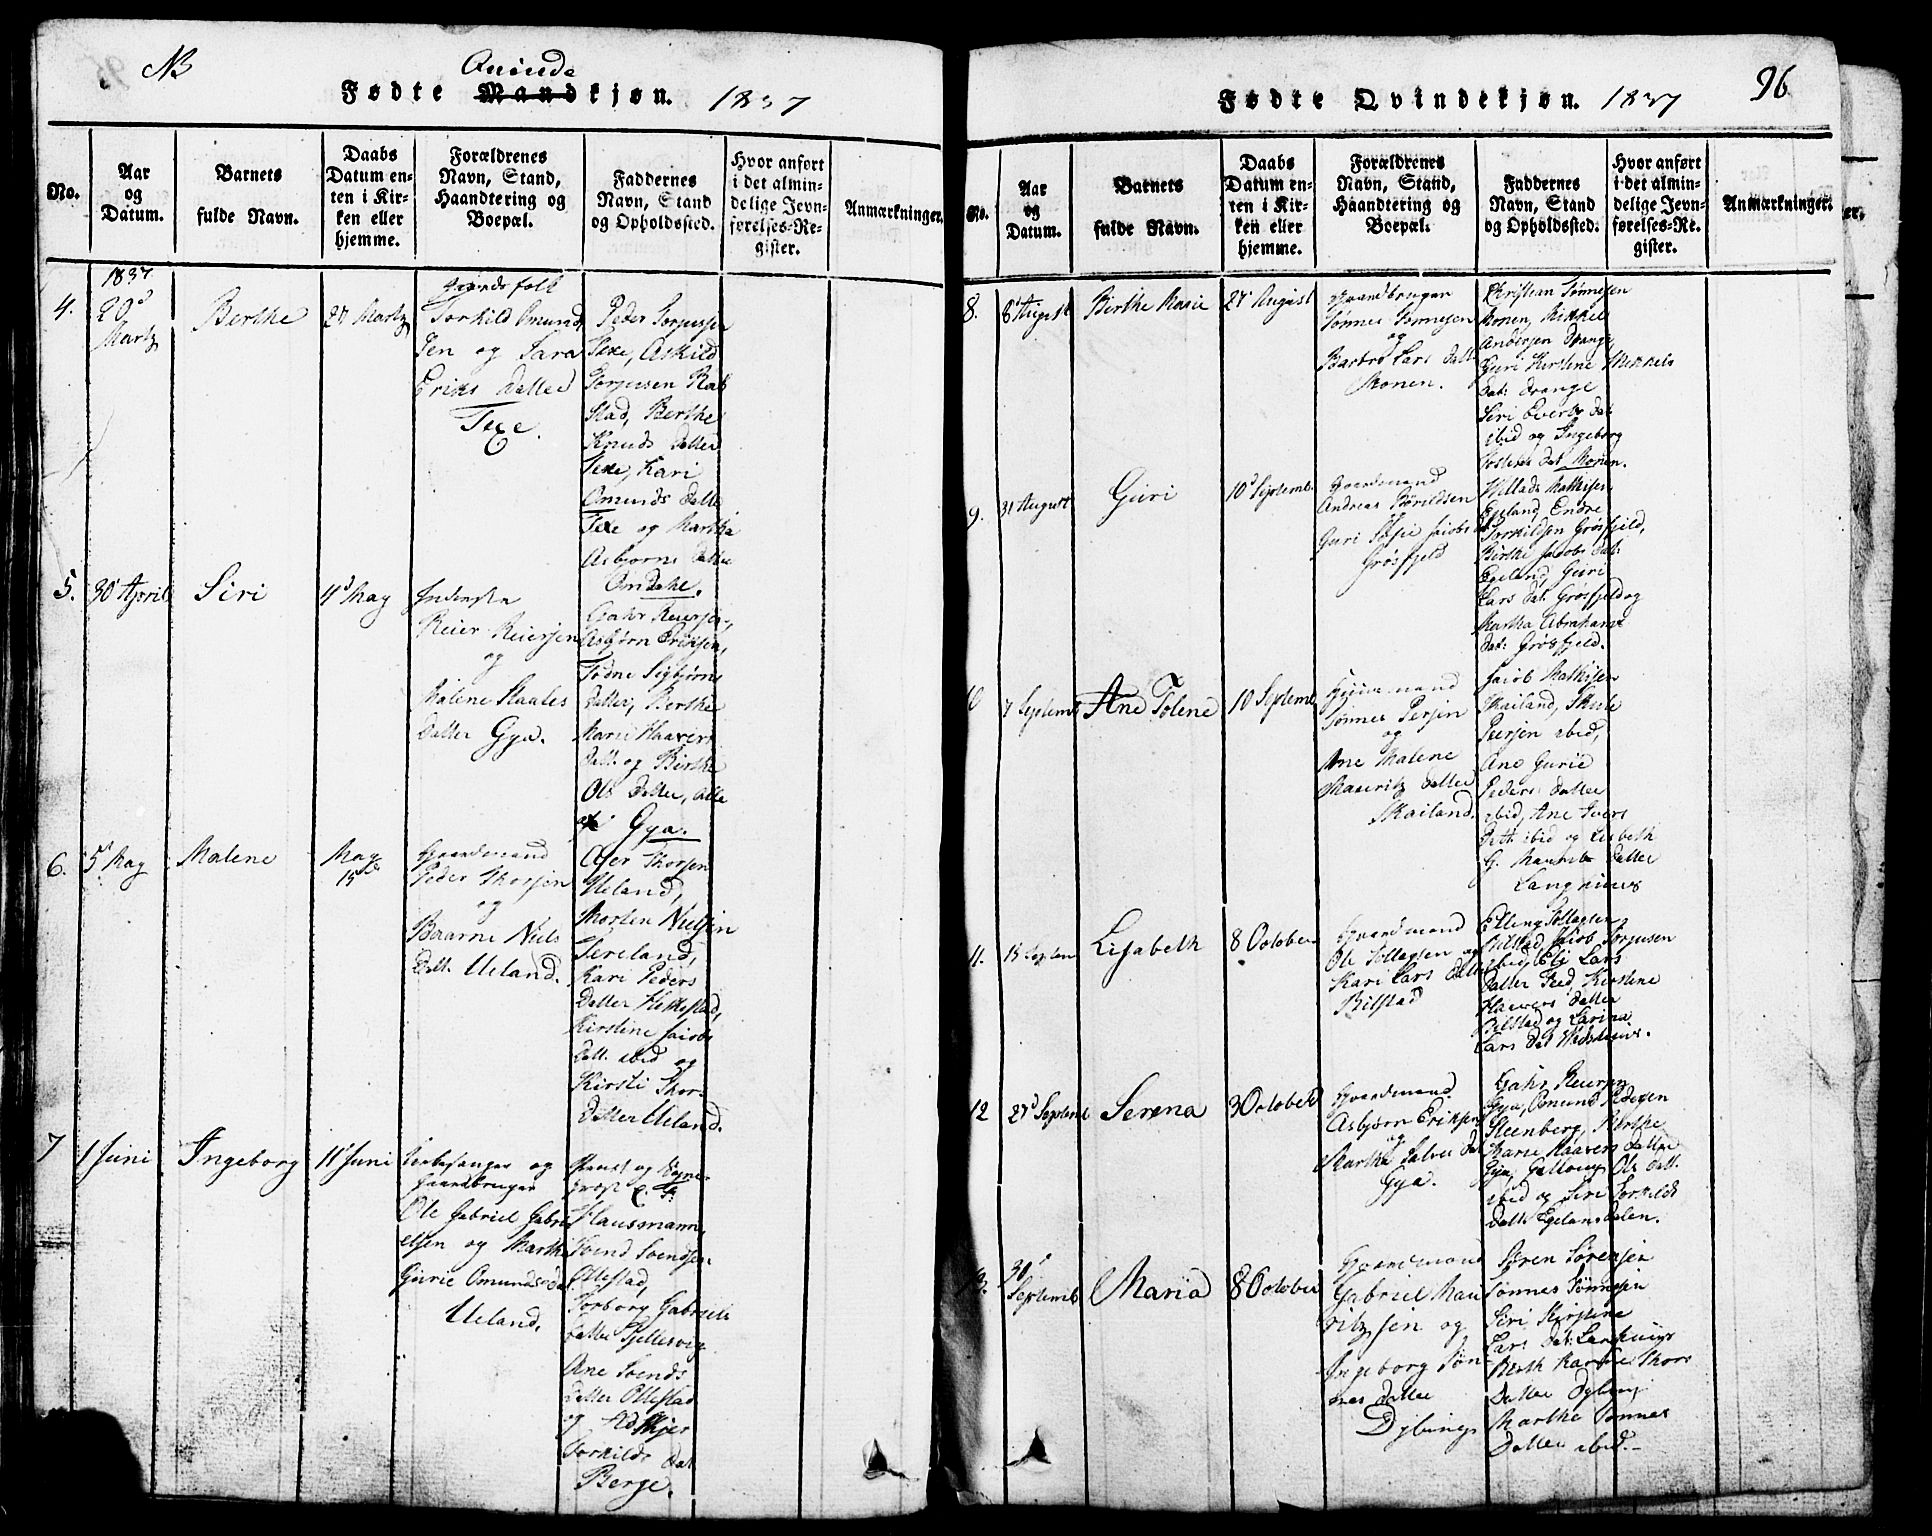 NB
Qvinde
Fødte Mandkjøn. 1837
No.
Aar
og
Datum.
Barnets
fulde Navn.
Daabs
Datum en-
ten i Kir-
ken eller
hjemme.
Forældrenes
Navn, Stand,
Haandtering og
Boepæl.
Faddernes
Navn, Stand
og Opholdssted.
Hvor anført
i det almin-
delige Jevn-
førelses-Re-
gister.
Anmærkninger.
4.
1837
20d
Martz
Berthe
27 Martz
Gaardsfolk
Torkild Omund
sen og Sara
Eriks Datter
Texe.
Peder Torjussen
Texe, Askild
Torjusen Rob
stad, Berthe
Knuds Datter
Texe, Kari
Omunds Datter
Texe og Martha
Asbjørns Datter
Omdahl.
5.
30 April
Siri
4d May
Inderste
Reier Reiersen
og
Malene Staales
Datter Gya.
Gahr Reiersen,
Asbjørn Eriksen,
Todne Sigbjørns
Datter, Berthe
Marie Haavers
Datt. og Berthe
Ols Datter, alle
Gya.
6.
5d May
Malene
May
15de
Gaardmand
Peder Thorsen
og
Baarne Niels
Datt. Ueland.
Thorsen
Ueland,
Morten Nielsen
Sereland,
Kari Peders
Datter Hekkestad,
Kirstine Jacobs
Datt. ibid og
Kirsti Thors
Datter Ueland.
7
1 Juni
Ingeborg
11 Juni
Kirkesanger og
Gaardbruger
Ole Gabriel Gabri
elsen og Martha
Gurie Omunds Dat
Ueland.
Provst og Sogne-
præst
Hausmann,
Svend Svendsen
Ollestad,
Torborg Gabriels
Datter
Ane Svends
Datter Ollestad
og
Torkilds Dat
Berge.
Fødte Qvindekjøn. 1837
96
No.
Aar
og
Datum.
Barnets
fulde Navn.
Daabs
Datum en-
ten i Kir-
ken eller
hjemme.
Forældrenes
Navn, Stand,
Haandtering og
Boepæl.
Faddernes
Navn, Stand
og Opholdssted.
Hvor anført
i det almin-
delige Jevn-
førelses-Re-
gister.
Anmærkninger.
8.
6 August
Berthe Marie
27 August
Gaardbruger
Tønnes Tønnesen
og
Barbro Lars Datt.
Monen.
Christian Tønnesen
Monen, Mikkel
Andersen Drange,
Guri Kirstine Mikkels
Dat. Drange
Siri Everts Dat
ibid og Ingeborg
Dat. Monen.
9.
31 August
Guri
10d Septemb.
Gaardmand
Andreas Torkildsen
Guri Sofie Jacobs Dat
Grøsfjeld
Villads Mathisen
Egeland, Endre
Torkildsen Grøsfjeld,
Birthe Jacobs Dat.
Egeland, Guri
Lars Dat. Grøsfjeld og
Martha Abrahams
Dat. Grøsfjeld.
10
7 Septemb
Ane Tolene
10 Septemb.
Gaardmand
Tønnes Persen
og
Ane Malene
Mauritz Datter
Skailand.
Jacob Mathisen
Skailand, Skule
Peersen ibid,
Ane Gurie
Peders Datter
ibid, Ane Ivers
Datt. ibid og Lisbeth
G. Mauritz Datter
Langhuus
11.
15 Septem
Lisabeth
8 October
Gaardmand
Ole Tollagsen og
Kari Lars Datter
Bilstad
Elling Tollagsen
Bilstad, Jacob Torjusen
ibid, Eli Lars
Datter Sted, Kirstine
Haavers Datter
Bilstad og Sarina
Lars Dat
12
27d Septemb
Serena
3 October
Gaardmand
Asbjørn Eriksen
og
Martha Salve Dat
Gya.
Gahr Reiersen
Gya, Omund Pedersen
Steenberg, Berthe
Marie Haavers Datter
Gya, Ols Datt.
ibid og Siri Torkilds
Datt. Egelandsdalen.
13.
30d
Septemb
Maria
8 October
Gaardmand
Gabriel Mau
ritzsen og
Ingeborg Tøn
nes Datter
Dybing
Søren Sørensen
Tønnes Tønnesen
Siri Kirstine
Lars Dat.
Berth Karine Thors
Datter Dybing
Marthe Tønnes
Datter ibid.